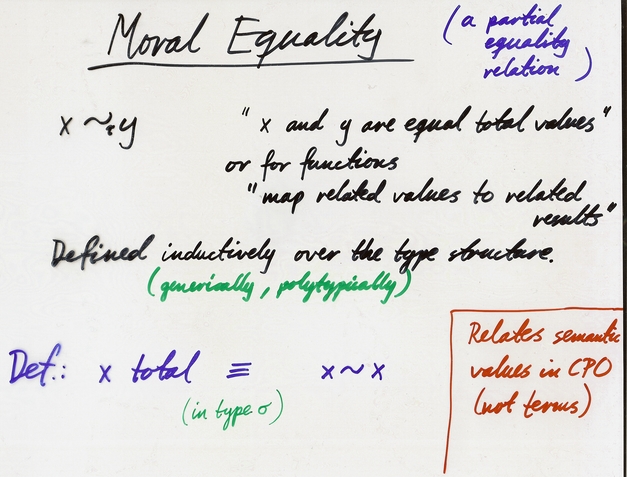 Moral Equality
(a partial
equality
relation)
x ~: y
"x and y are equal total values"
or for functions
"map related values to related
results"
Defined inductively over the type structure.
(generically, polytypically)
Def.: x total ≡ x ~ x
(in type σ)
Relates semantic
values in CPO
(not terms)